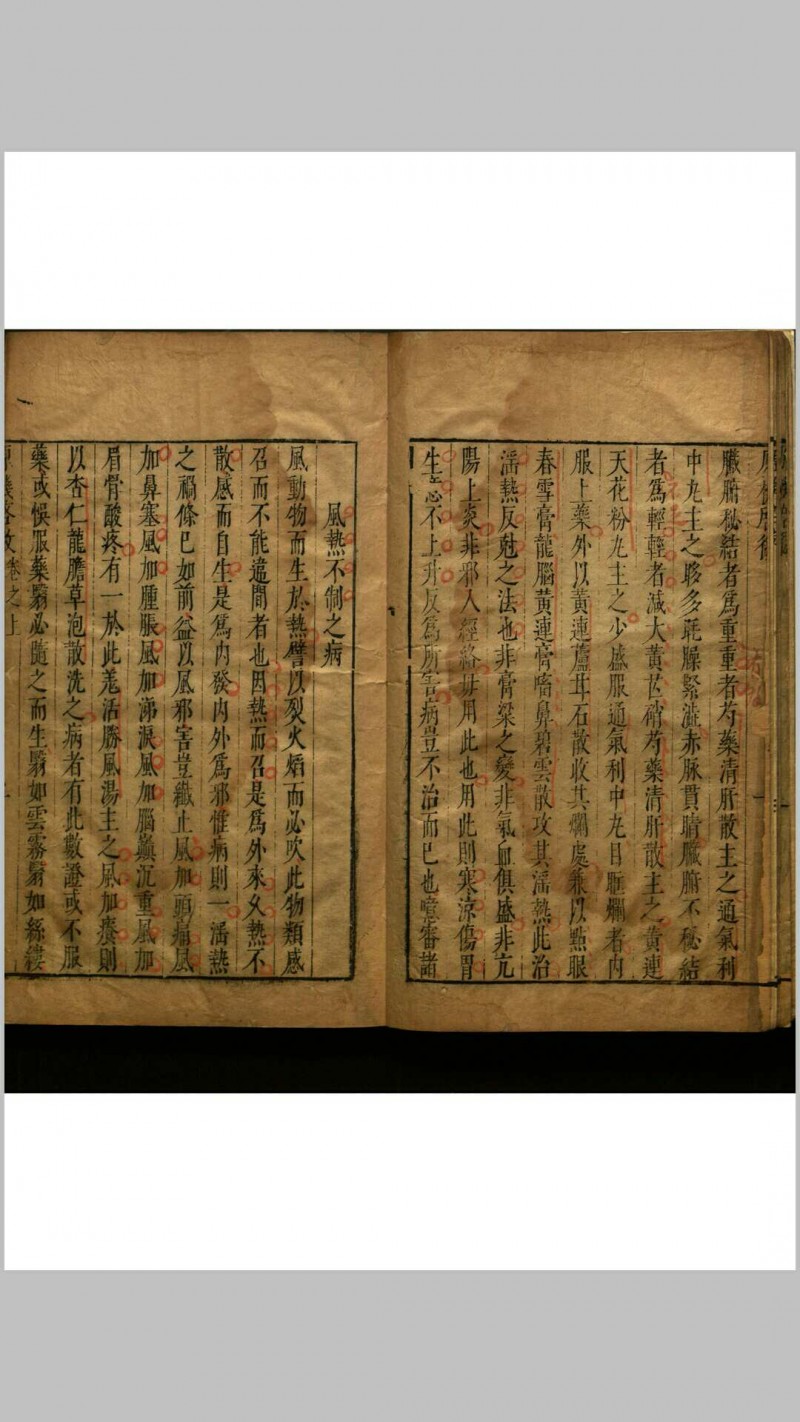 臟腑秘結者爲重重者芍藥清肝散主之通氣利
中丸主之眵多眊矂緊澁赤脉貫睛臟腑不秘結
者爲輕輕者減大黄芒硝芍藥清肝散主之黄連
天花粉丸主之少盛服通氣利中丸目眶爛者內
服上藥外以黄連蘆甘石散收其爛處兼以點眼
春雪膏龍腦黄連膏㗜鼻碧雲散攻其滛熱此治
滛熱反尅之法也非膏粱之變非氣血俱盛非亢
陽上炎非邪入經絡毋用此也用此則寒涼傷胃
生意不上升反爲所害病豈不治而已也噫審諸
風熱不制之病
風動物而生於熱譬以裂火焰而必吹此物類感
召而不能違間者也因熱而召是爲外來久熱不
散感而自生是爲內發內外爲邪惟病則一滛熱
之禍條已如前益以風邪害豈纎止風加頭痛風
加鼻塞風加腫脹風加涕淚風加腦巔沉重風加
眉骨酸疼有一於此羗活勝風湯主之風加癢則
以杏仁龍膽草泡散洗之病者有此數證或不服
藥或悞服藥翳必隨之而生翳如雲霧翳如絲縷